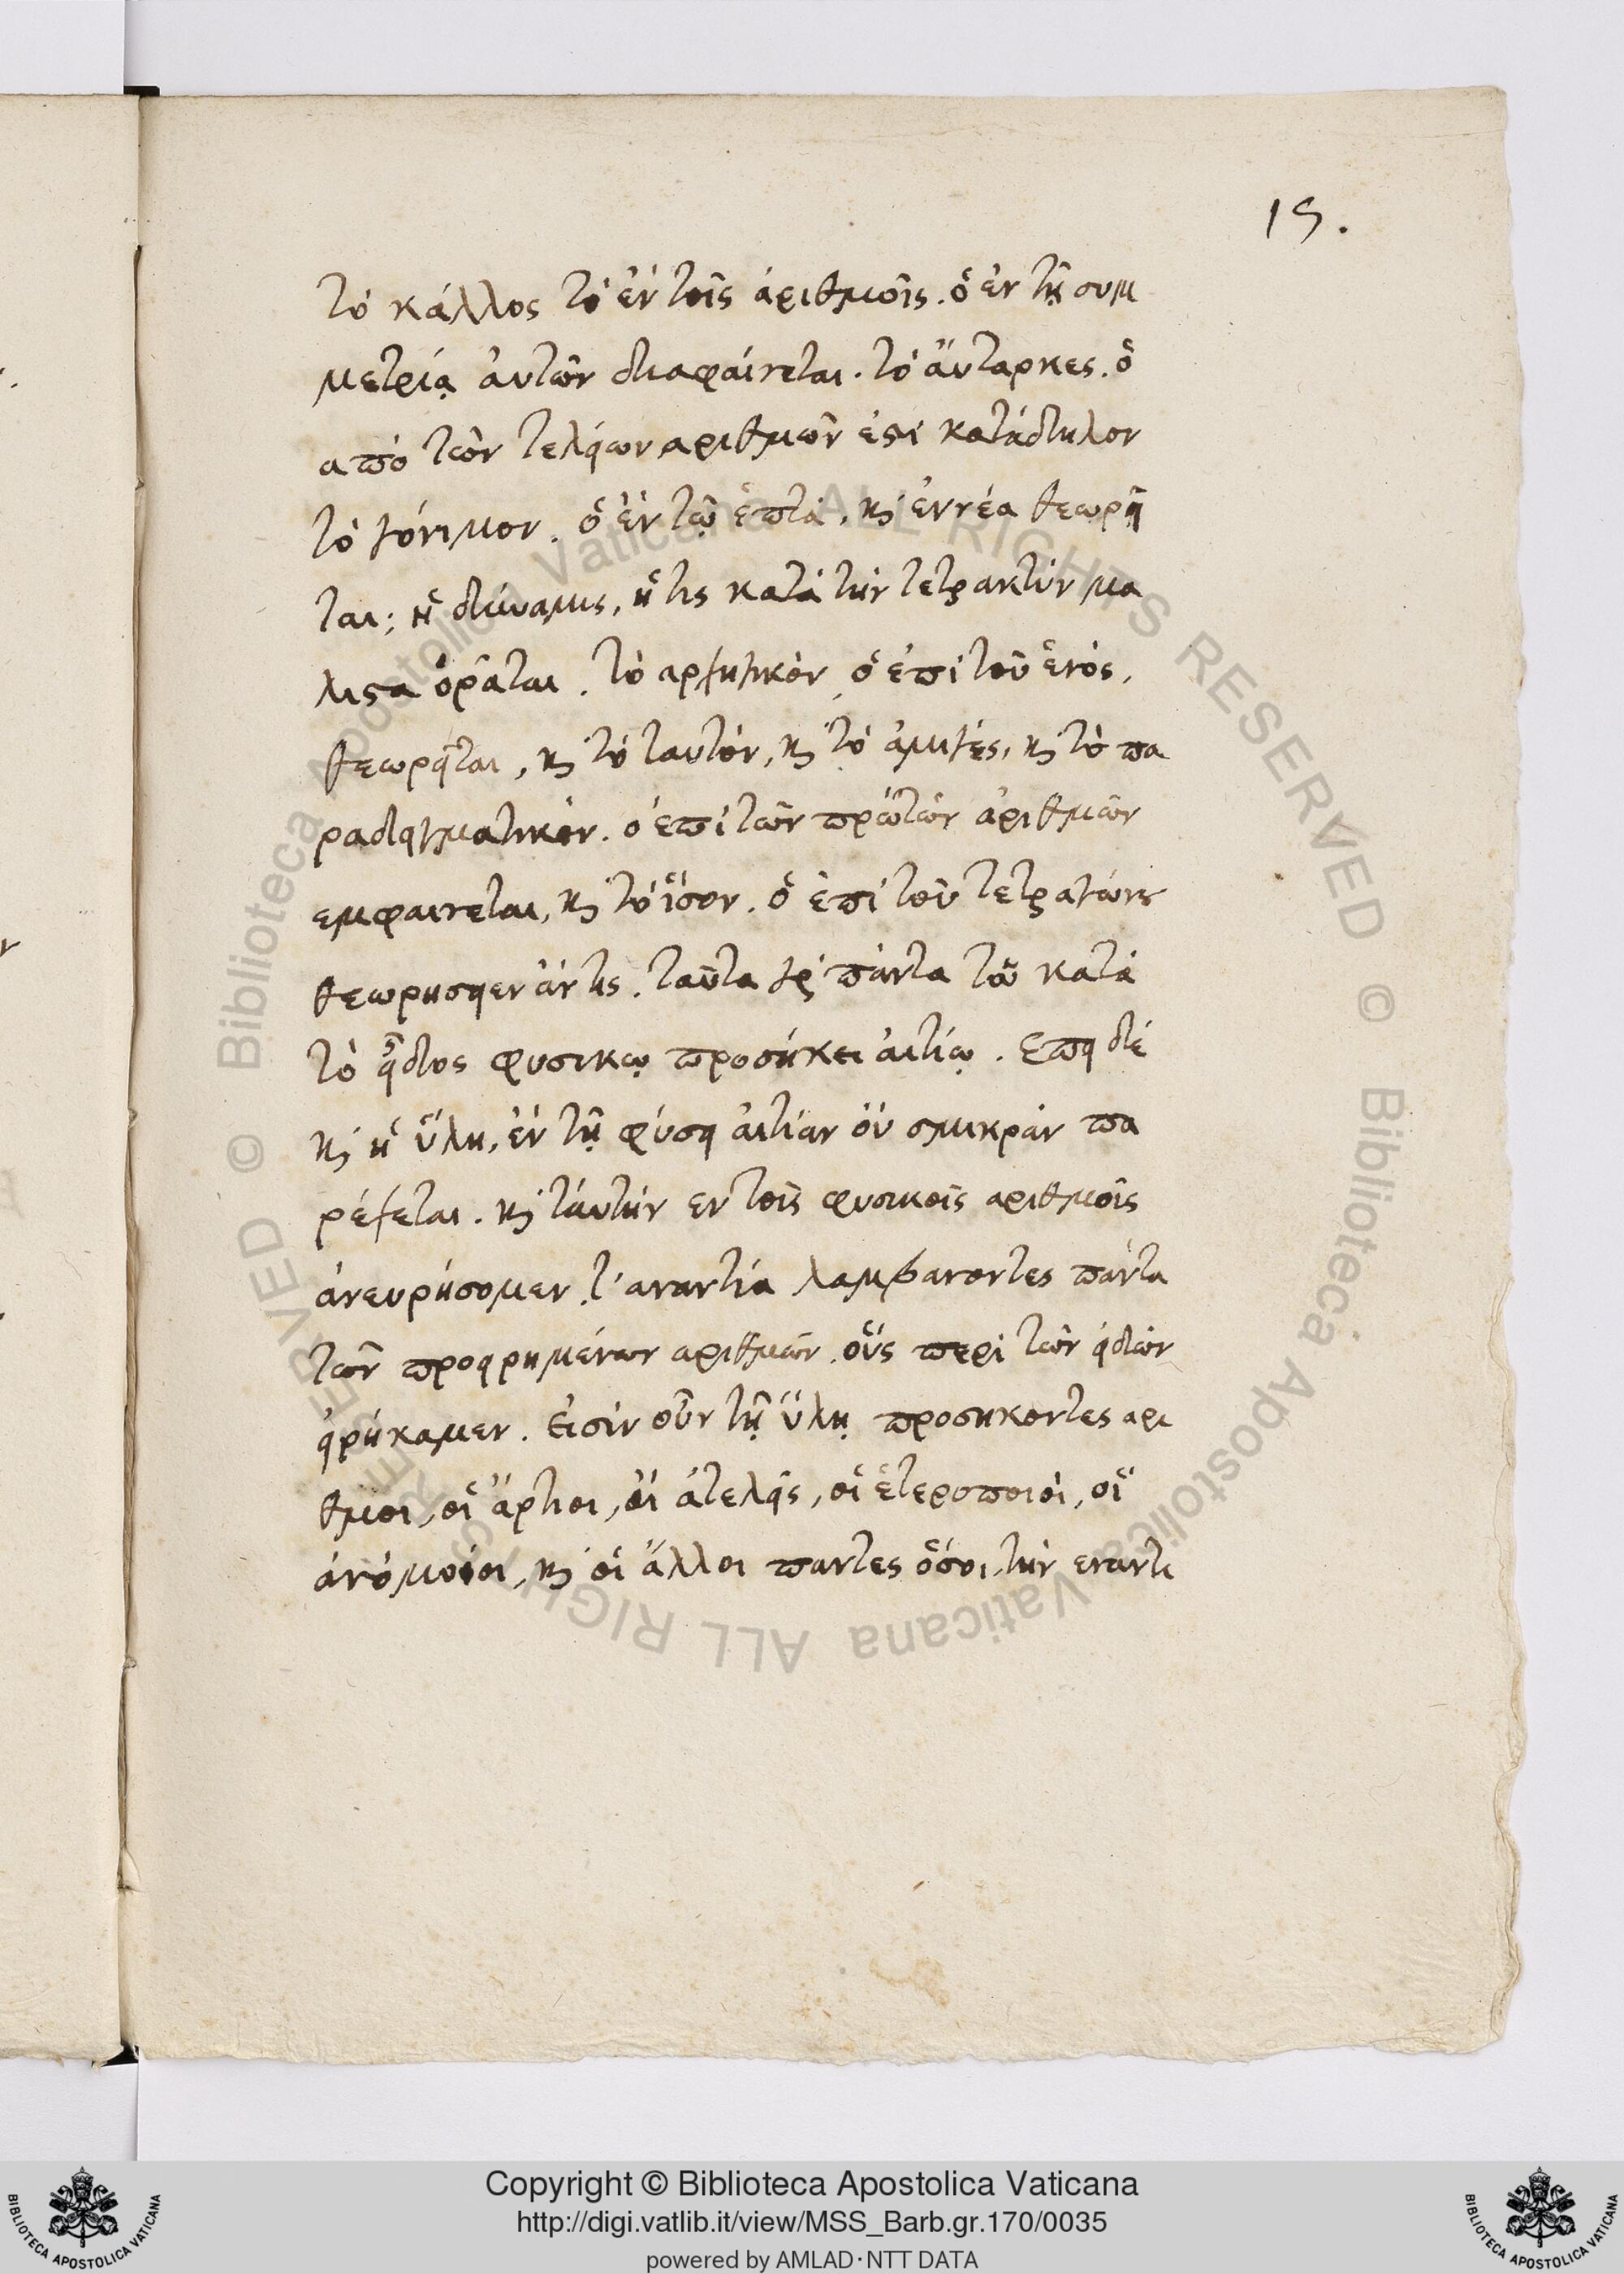 15.
τὸ κάλλος τὸ ἐν τοῖς ἀριθμοῖς. ὃ ἐν τῇ συμ
μετρίᾳ ἀυτῶν διαφαίνεται. τὸ ἄυταρκες. ὃ
απὸ τῶν τελείων αριθμῶν ἐστὶ κατάδηλον
τὸ γόνιμον. ὃ ἐν τῷ ἑπτὰ, καὶ ἐννέα θεωρεῖ
ται; ἡ δύναμις, ἥ τις κατὰ τὴν τετρακτὺν μα
λιστα ὁρᾶται. τὸ αρχηγικὸν, ὃ ἐπὶ τοῦ ἑνός,
θεωρεῖται, καὶ τὸ ταυτὸν, καὶ τὸ ἀμιγὲς, καὶ τὸ πα
ραδειγματικὸν. ὁ επὶ τῶν πρώτων ἀριθμῶν
εμφαινεται, καὶ τὸ ἴσον. ὃ ἐπὶ τοῦ τετραγώνου
θεωρησειεν ἄν τις. ταῦτα γὰρ πάντα τῶ κατὰ
τὸ εἶδος φυσικῳ προσήκει ἀιτίῳ. Επεὶ δὲ
καὶ ἡ ὕλη, ἐν τῇ φύσει ἀιτίαν ὀυ σμικρὰν πα
ρέχεται. καὶ τάυτην εν τοῖς φυσικοῖς αριθμοῖς
ἀνευρήσομεν, τ' αναντία λαμβανοντες πάντα
τῶν προειρημένων αριθμῶν. οὓς περὶ τῶν εἰδῶν
εἰρήκαμεν. Εἰσὶν οὖν τῇ ὕλῃ προσηκοντες αρι
θμοι, οἱ ἄρτιοι, ὁι ἀτελεῖς, οἱ ἑτεροποιοὶ, οἱ
ἀνόμοιοι, καὶ οἱ ἄλλοι παντες ὅσοι, τὴν εναντι
Copyright © Biblioteca Apostolica Vaticana
http://digi.vatlib.it/view/MSS_Barb.gr.170/0035
powered by AMLAD·NTT DATA
BIBLIOTECA APOSTOLICA VATICANA
BIBLIOTECA APOSTOLICA VATICANA
© Biblioteca Apostolica Vaticana ALL RIGHTS RESERVED © Biblioteca Apostolica Vaticana ALL RIGHTS RESERVED